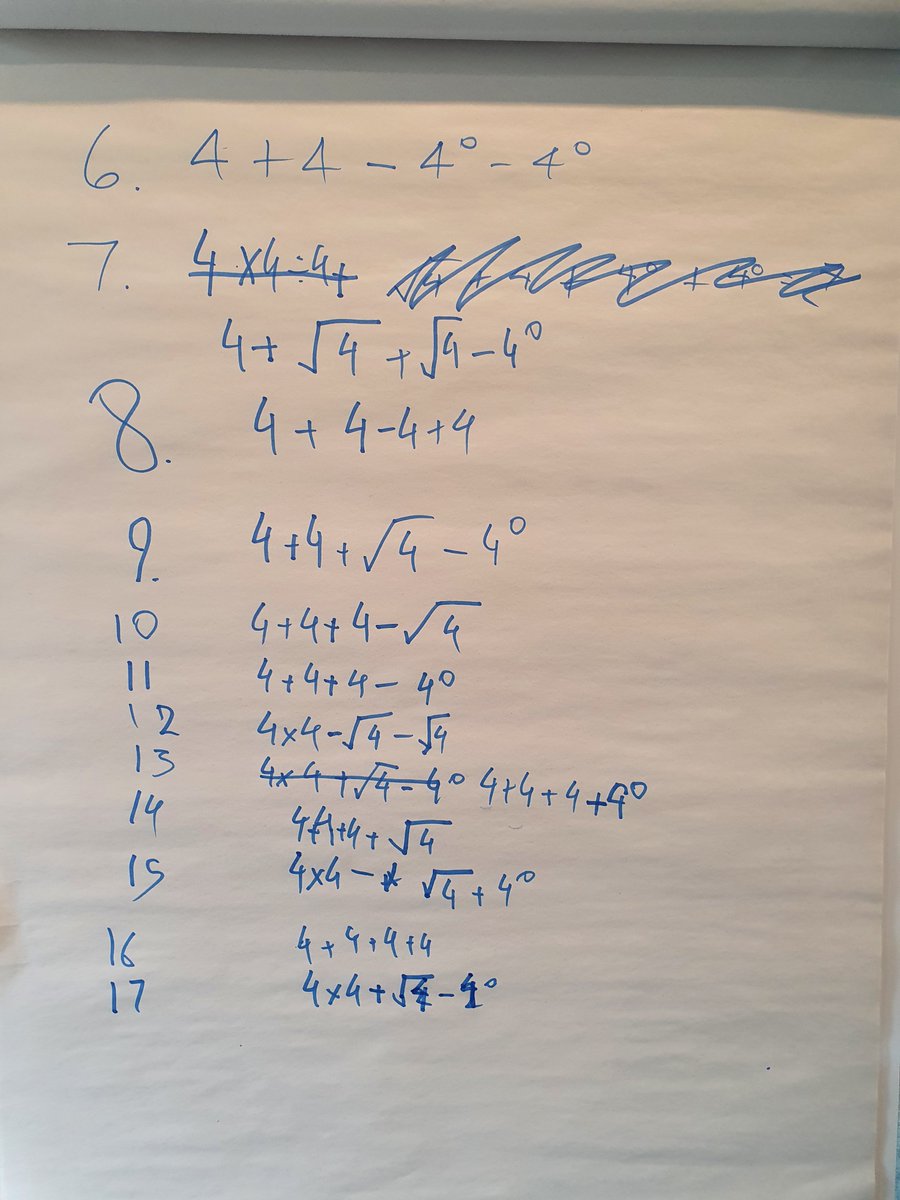 6. 4 + 4 - 4⁰ - 4⁰
7. 4 × 4 ÷ 4 +
4 + √4 + √4 - 4⁰
8. 4 + 4 - 4 + 4
9. 4 + 4 + √4 - 4⁰
10 4 + 4 + 4 - √4
11 4 + 4 + 4 - 4⁰
12 4 × 4 - √4 - √4
13 4 × 4 + √4 - 4⁰ 4 + 4 + 4 + 4⁰
14 4 + 4 + 4 + √4
15 4 × 4 - √4 + 4⁰
16 4 + 4 + 4 + 4
17 4 × 4 + √4 - 4⁰